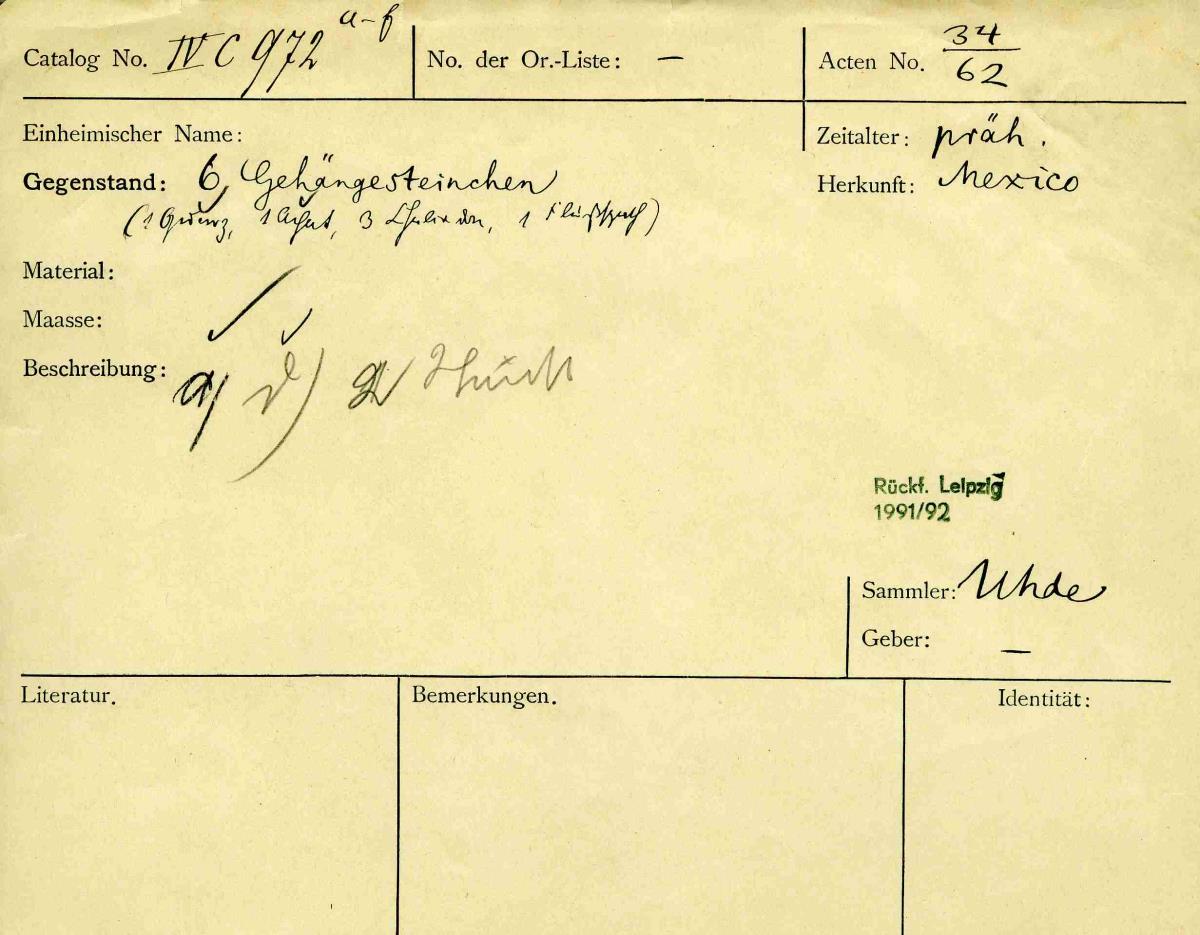 Catalog No. IV C 972 a-f
No. der Or.-Liste: —
Acten No. 34/62
Einheimischer Name:
Zeitalter: präh.
Gegenstand: 6 Gehängesteinchen
Herkunft: Mexico
(1 Quarz, 1 Achat, 3 Chalcedon, 1 Flußspath)
Material:
Maasse:
Beschreibung: a) d)
Rückf. Leipzig
1991/92
Sammler: Uhde
Geber: —
Literatur.
Bemerkungen.
Identität: